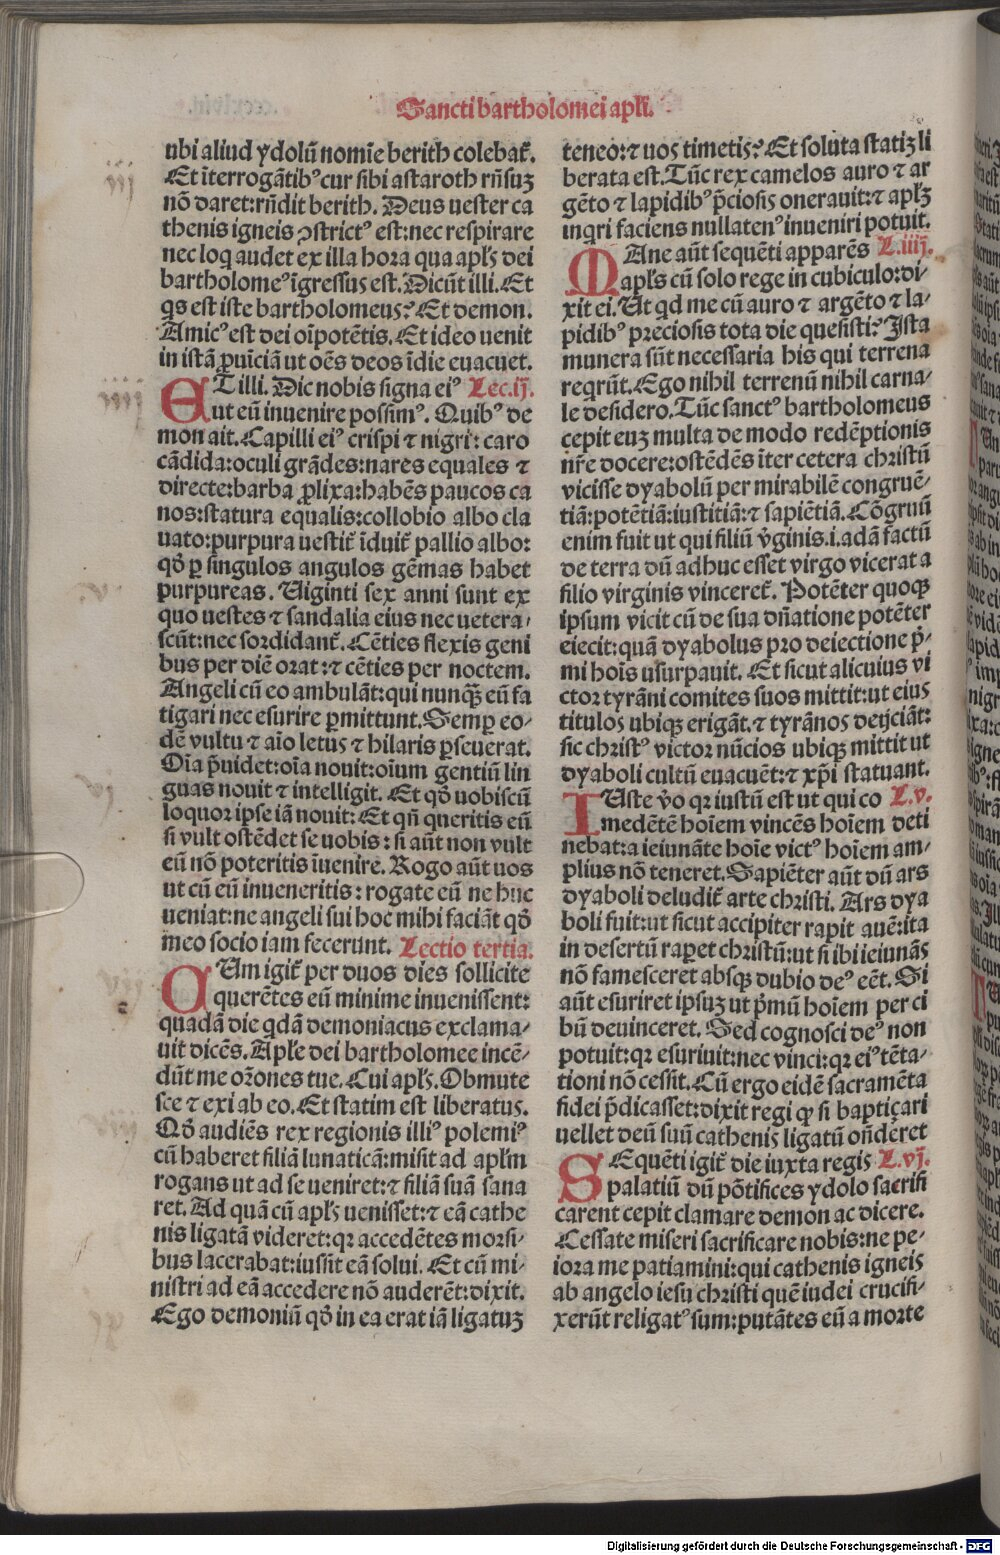 Sancti bartholomei apłi.
ubi aliud ydolū nomīe berith colebat᷑.
Et īterrogātibꝰ cur sibi astaroth rñsuꝫ
nō daret: rñdit berith. Deus uester ca
thenis igneis ꝯstrictꝰ est: nec respirare
nec loq̄ audet ex illa hora qua apłs dei
bartholomeꝰ īgressus est. Dicūt illi. Et
q̄s est iste bartholomeus? Et demon.
Amicꝰ est dei oīpotētis. Et ideo uenit
in istā ꝓuīciā ut oēs deos īdie euacuet.
ET illi. Dic nobis signa eiꝰ Lec.ij.
ut eū inuenire possimꝰ. Quibꝰ de
mon ait. Capilli eiꝰ crispi ⁊ nigri: caro
cādida: oculi grādes: nares equales ⁊
directe: barba ꝓlixa: habēs paucos ca
nos: statura equalis: collobio albo cla
uato: purpura uestit᷑ īduit᷑ pallio albo:
qđ ꝑ singulos angulos gēmas habet
purpureas. Uiginti sex anni sunt ex
quo uestes ⁊ sandalia eius nec uetera-
scūt: nec sordidant᷑. Cēties flexis geni
bus per diē orat: ⁊ cēties per noctem.
Angeli cū eo ambulāt: qui nunqꝫ̄ eū fa
tigari nec esurire ꝑmittunt. Semꝑ eo-
dē vultu ⁊ aīo letus ⁊ hilaris ꝑseuerat.
Oīa p̄uidet: oīa nouit: oīum gentiū lin
guas nouit ⁊ intelligit. Et qđ uobiscū
loquor ipse iā nouit: Et qn̄ queritis eū
si vult ostēdet se uobis: si aūt non vult
eū nō poteritis īuenire. Rogo aūt uos
ut cū eū inueneritis: rogate eū ne huc
ueniat: ne angeli sui hoc mihi faciāt qđ
meo socio iam fecerunt. Lectio tertia.
CUm igit᷑ per duos dies sollicite
querētes eū minime inuenissent:
quadā die q̄dā demoniacus exclama-
uit dicēs. Apłe dei bartholomee incē-
dūt me orōnes tue. Cui apłs. Obmute
sce ⁊ exi ab eo. Et statim est liberatus.
Qđ audiēs rex regionis illiꝰ polemiꝰ
cū haberet filiā lunaticā: misit ad apłm
rogans ut ad se ueniret: ⁊ filiā suā sana
ret. Ad quā cū apłs uenisset: ⁊ eā cathe
nis ligatā videret: qꝛ accedētes morsi-
bus lacerabat: iussit eā solui. Et cū mi-
nistri ad eā accedere nō auderēt: dixit.
Ego demoniū qđ in ea erat iā ligatuꝫ
teneo: ⁊ uos timetis? Et soluta statiꝫ li
berata est. Tūc rex camelos auro ⁊ ar
gēto ⁊ lapidibꝰ p̄ciosis onerauit: ⁊ apłꝫ
inq̄ri faciens nullatenꝰ inueniri potuit.
MAne aūt sequēti apparēs L.iiij.
apłs cū solo rege in cubiculo: di-
xit ei. Ut qd me cū auro ⁊ argēto ⁊ la-
pidibꝰ preciosis tota die quesisti? Ista
munera sūt necessaria his qui terrena
reqrūt. Ego nihil terrenū nihil carna-
le desidero. Tūc sanctꝰ bartholomeus
cepit euꝫ multa de modo redēptionis
nr̄e docere: ostēdēs īter cetera christū
vicisse dyabolū per mirabilē congruē-
tiā: potētiā: iustitiā: ⁊ sapiētiā. Cōgruū
enim fuit ut qui filiū v̄ginis .i. adā factū
de terra dū adhuc esset virgo vicerat a
filio virginis vinceret᷑. Potēter quoqꝫ
ipsum vicit cū de sua dn̄atione potēter
eiecit: quā dyabolus pro deiectione p̄-
mi hoīs usurpauit. Et sicut alicuius vi
ctor tyrāni comites suos mittit: ut eius
titulos ubiqꝫ erigāt. ⁊ tyrānos deijciāt:
sic christꝰ victor nūcios ubiqꝫ mittit ut
dyaboli cultū euacuēt: ⁊ xp̄i statuant.
IUste v̄o qꝛ iustū est ut qui co L.v.
medētē hoīem vincēs hoīem deti
nebat: a ieiunāte hoīe victꝰ hoīem am-
plius nō teneret. Sapiēter aūt dū ars
dyaboli deludit᷑ arte christi. Ars dya
boli fuit: ut sicut accipiter rapit auē: ita
in desertū raperet christū: ut si ibi ieiunās
nō famesceret absqꝫ dubio deꝰ eēt. Si
aūt esuriret ipsuꝫ ut p̄mū hoīem per ci
bū deuinceret. Sed cognosci deꝰ non
potuit: qꝛ esuriuit: nec vinci: qꝛ eiꝰ tēta-
tioni nō cessit. Cū ergo eidē sacramēta
fidei p̄dicasset: dixit regi ꝙ si baptiçari
uellet deū suū cathenis ligatū on̄deret
SEquēti igit᷑ die iuxta regis L.vj.
palatiū dū pōtifices ydolo sacrifi
carent cepit clamare demon ac dicere.
Cessate miseri sacrificare nobis: ne pe-
iora me patiamini: qui cathenis igneis
ab angelo iesu christi quē iudei crucifi-
xerūt religatꝰ sum: putātes eū a morte
Digitalisierung gefördert durch die Deutsche Forschungsgemeinschaft - DFG